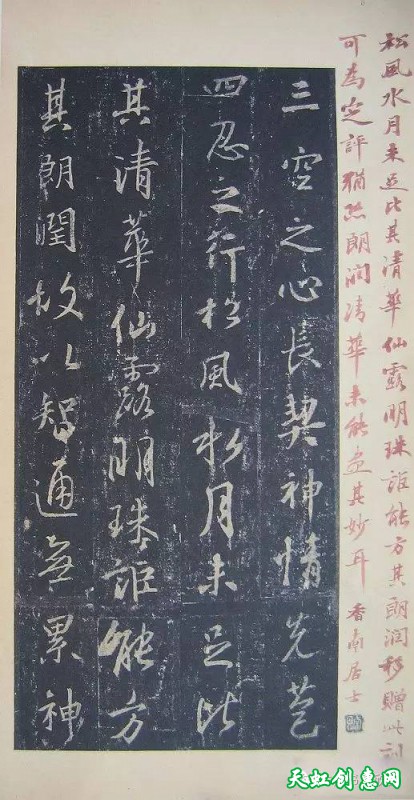 松風水月未足比其清華仙露明珠詎能方其朗潤移贈此刻
可為定評猶恐朗潤清華未能盡其妙耳 香南居士
三空之心長契神情先苞
四忍之行松風水月未足比
其清華仙露明珠詎能方
其朗潤故以智通無累神
天虹创意网